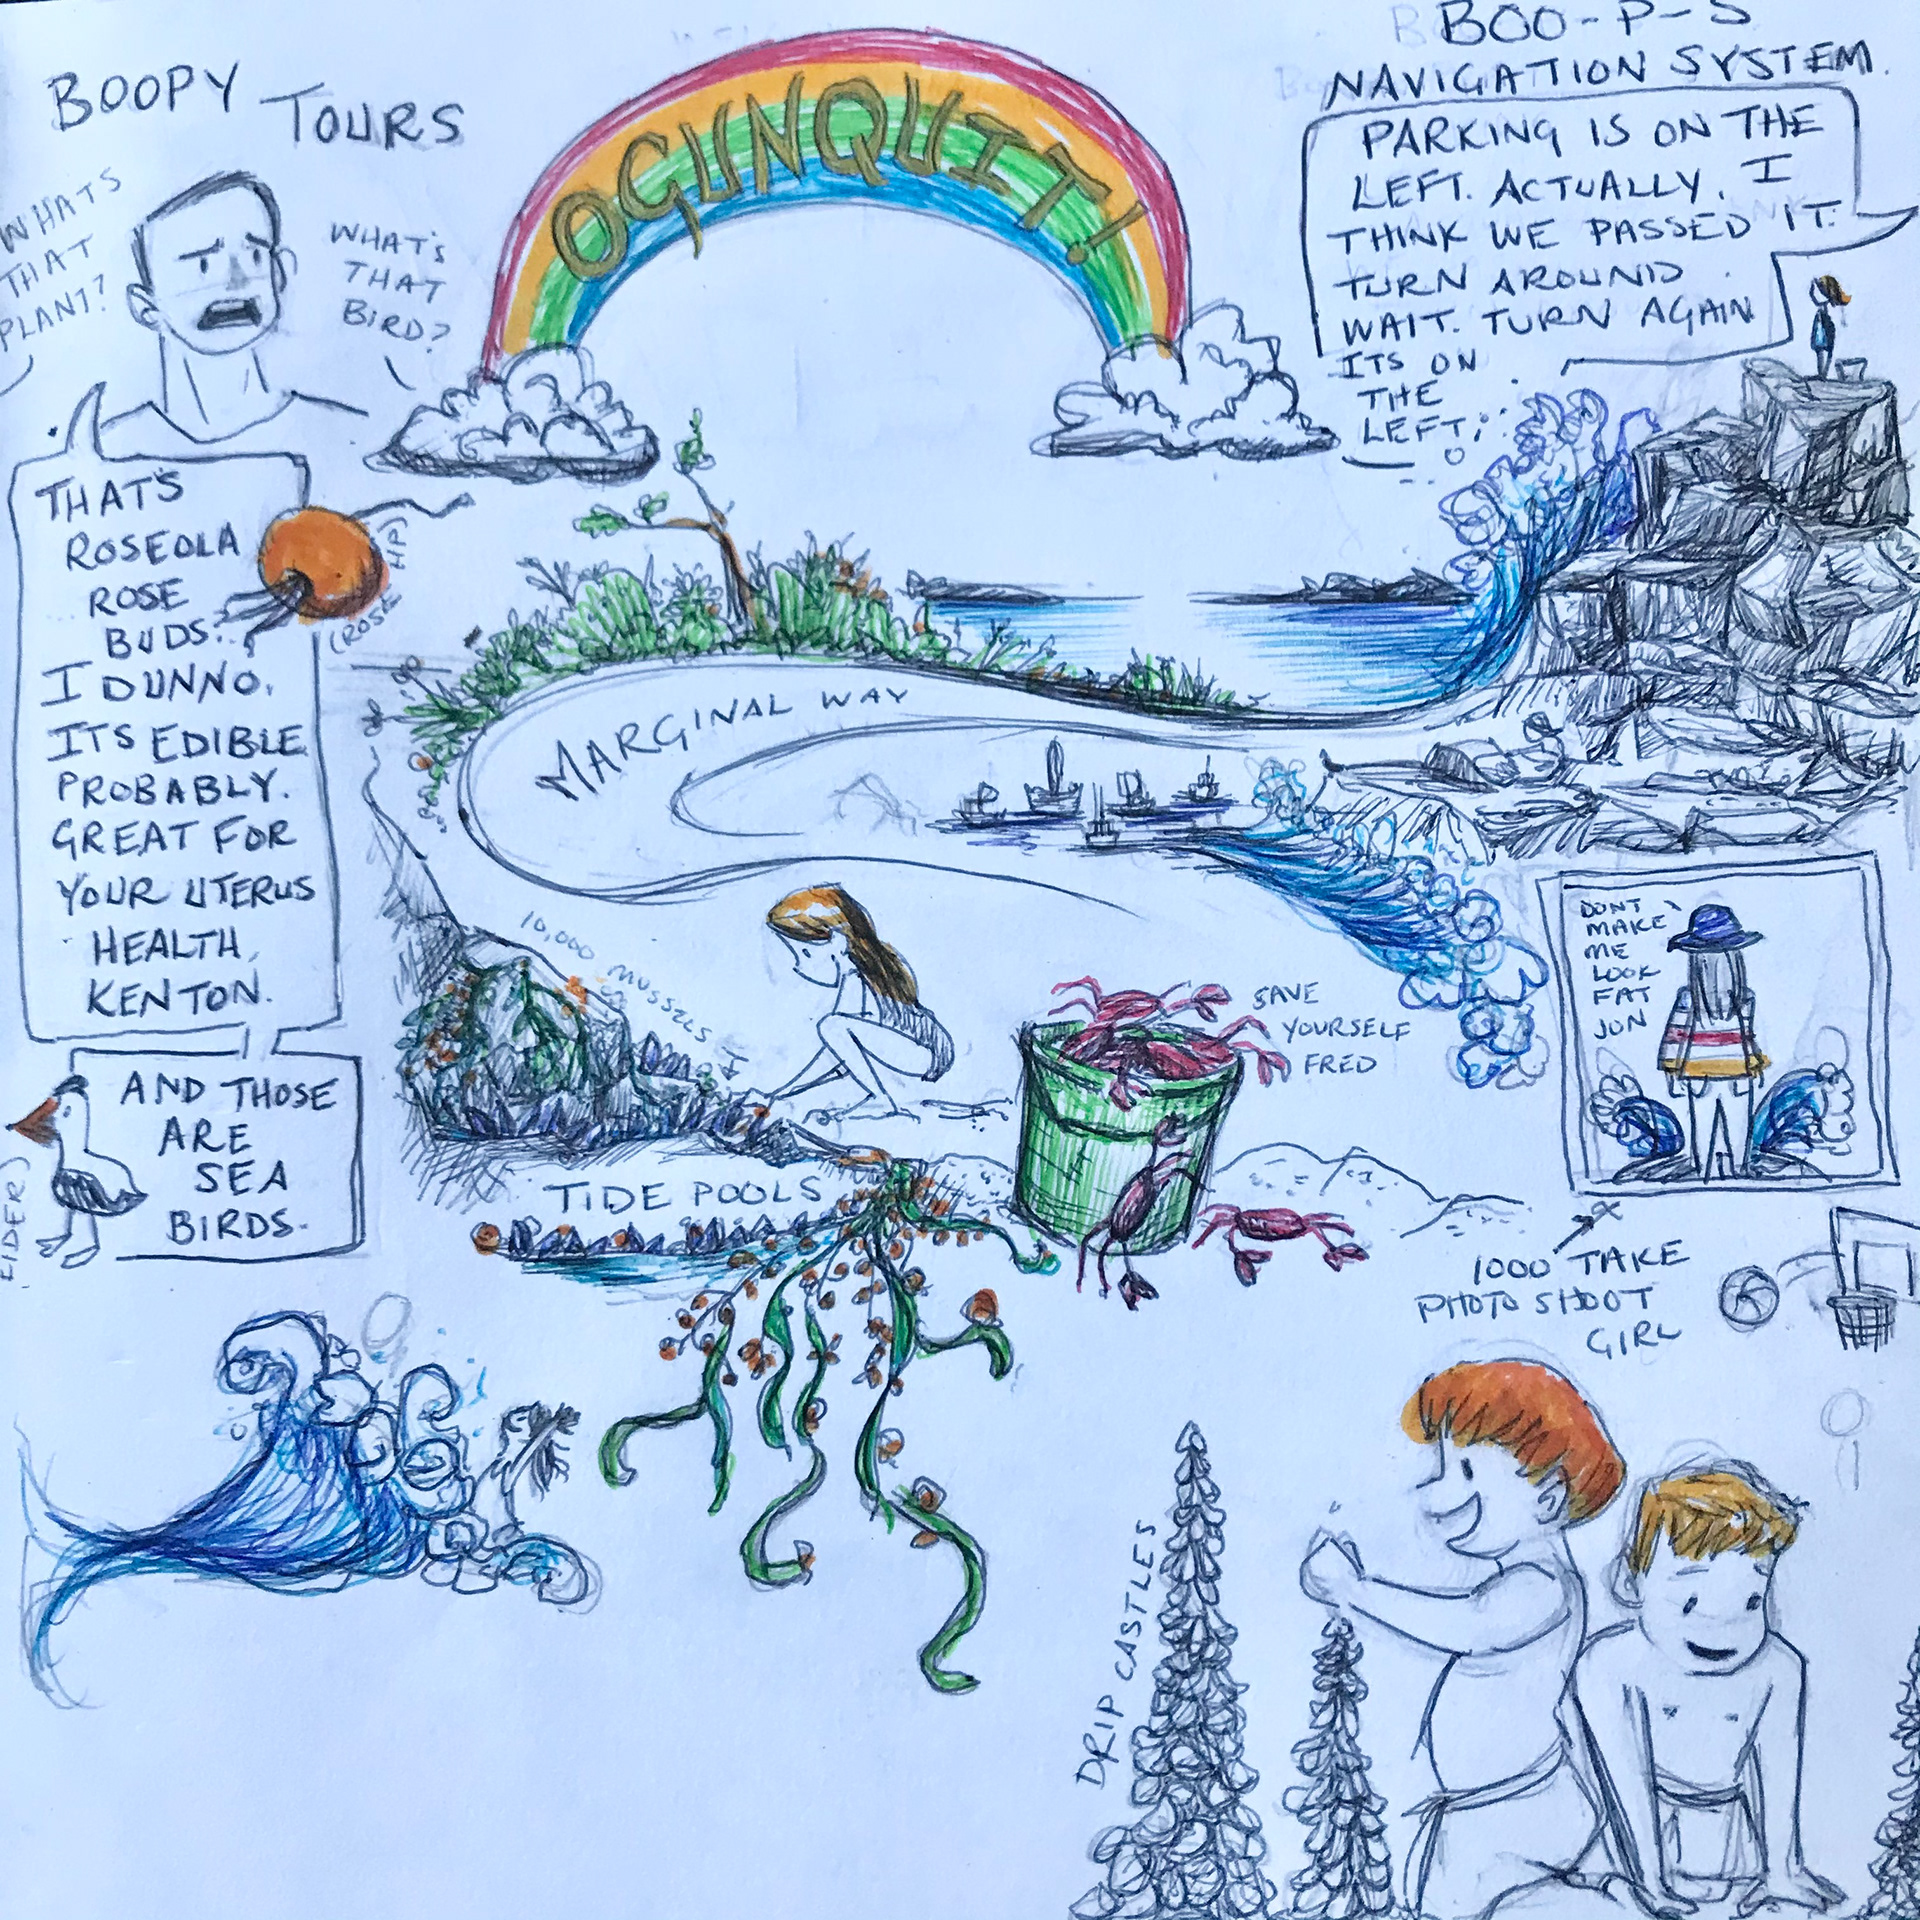 BOOPY TOURS
OGUNQUIT!
BOO-P-S
NAVIGATION SYSTEM.
PARKING IS ON THE
LEFT. ACTUALLY, I
THINK WE PASSED IT.
TURN AROUND.
WAIT. TURN AGAIN
ITS ON
THE
LEFT
WHATS
THAT
PLANT?
WHAT'S
THAT
BIRD?
THAT'S
ROSEOLA
ROSE
BUDS.
I DUNNO.
ITS EDIBLE
PROBABLY.
GREAT FOR
YOUR UTERUS
HEALTH,
KENTON.
(ROSE HIP)
AND THOSE
ARE
SEA
BIRDS.
EIDER)
MARGINAL WAY
10,000 MUSSELS
TIDE POOLS
SAVE
YOURSELF
FRED
DONT
MAKE
ME
LOOK
FAT
JON
1000 TAKE
PHOTO SHOOT
GIRL
DRIP CASTLES